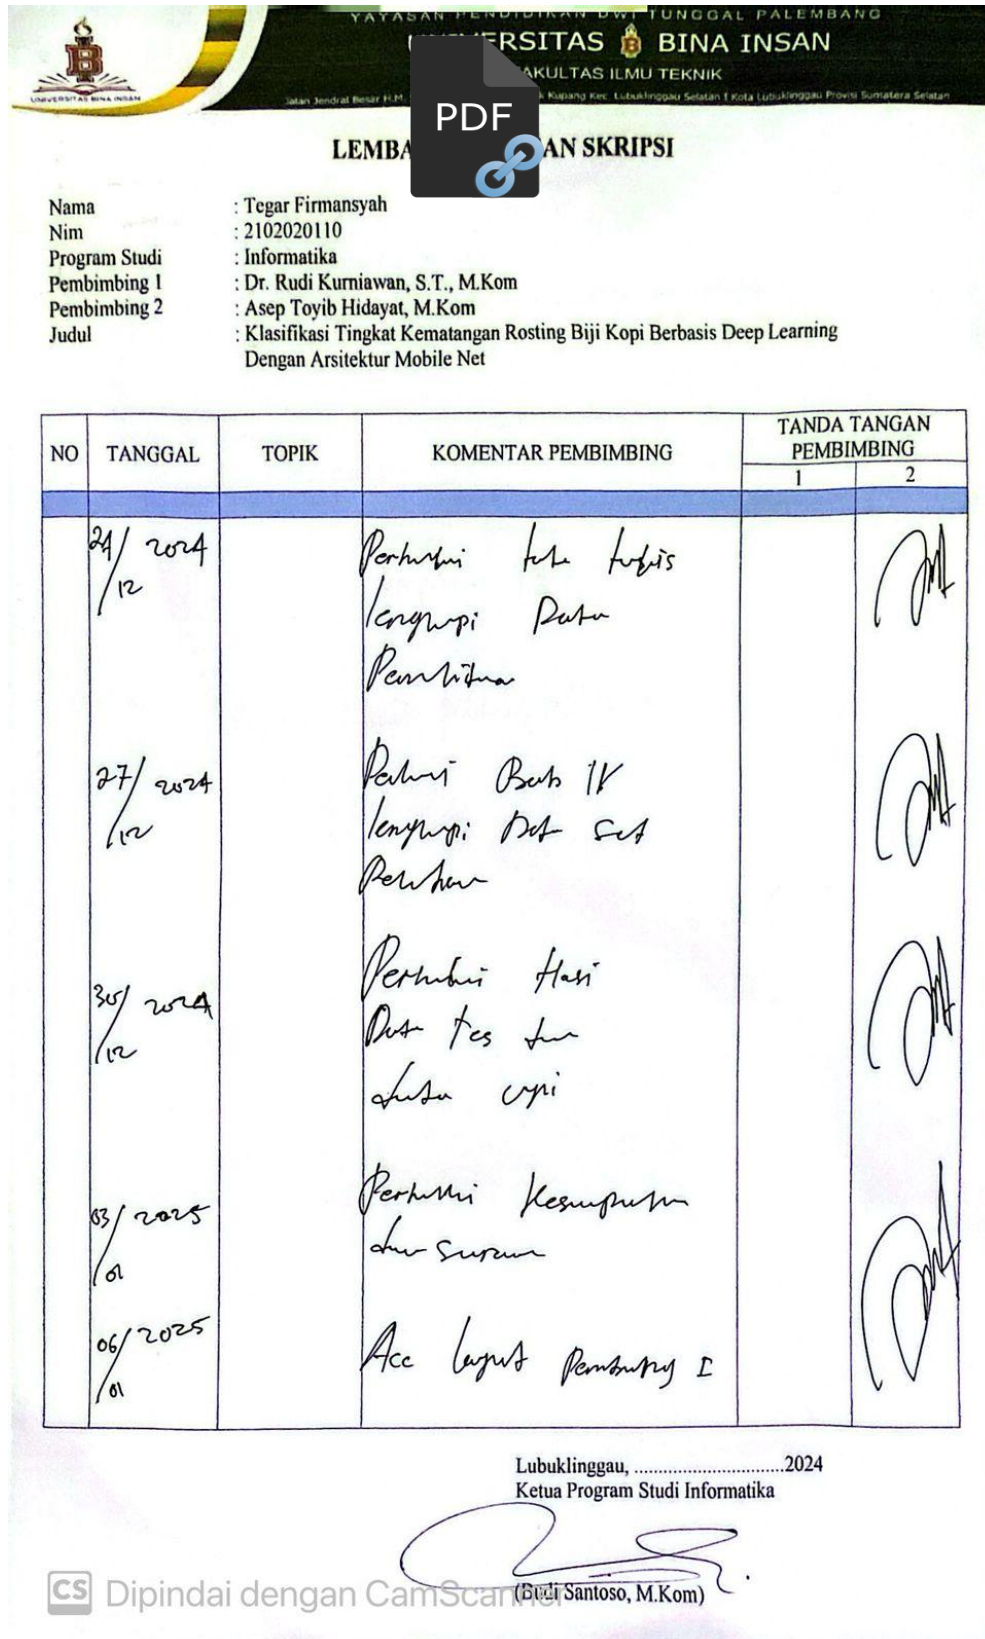 YAYASAN PENDIDIKAN DWI TUNGGAL PALEMBANG
UNIVERSITAS BINA INSAN
FAKULTAS ILMU TEKNIK
UNIVERSITAS BINA INSAN
Jalan Jendral Besar H.M. Kupang Kec. Lubuklinggau Selatan I Kota Lubuklinggau Provisi Sumatera Selatan
PDF
LEMBA AN SKRIPSI
Nama : Tegar Firmansyah
Nim : 2102020110
Program Studi : Informatika
Pembimbing 1 : Dr. Rudi Kurniawan, S.T., M.Kom
Pembimbing 2 : Asep Toyib Hidayat, M.Kom
Judul : Klasifikasi Tingkat Kematangan Rosting Biji Kopi Berbasis Deep Learning
Dengan Arsitektur Mobile Net
NO TANGGAL TOPIK KOMENTAR PEMBIMBING TANDA TANGAN PEMBIMBING
1 2
24/12 2024 Perbaiki tata tulis
lengkapi Data
Penelitian
27/12 2024 Perbaiki Bab IV
lengkapi Data Set
30/12 2024 Perbaiki Hasil
Data Tes dan
data uji
03/01 2025 Perbaiki Kesimpulan
dan saran
06/01 2025 Acc lanjut Pembimbing I
Lubuklinggau, ................................2024
Ketua Program Studi Informatika
(Budi Santoso, M.Kom)
CS Dipindai dengan CamScanner